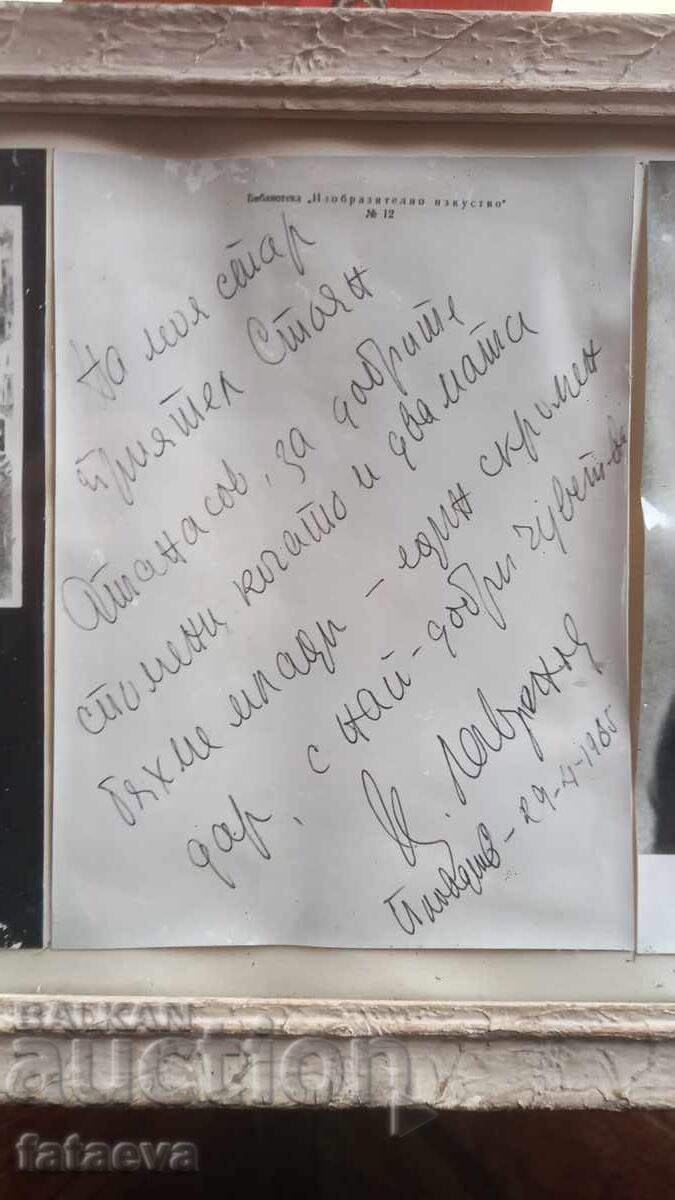 Библиотека „Изобразително изкуство“
№ 12
На моя стар
приятел Стоян
Атанасов, за добрите
спомени, когато и двамата
бяхме млади – един скромен
дар, с най-добри чувства
Ц. Лавренов
Пловдив – 29-4-1965
BALKAN
auction
fataeva